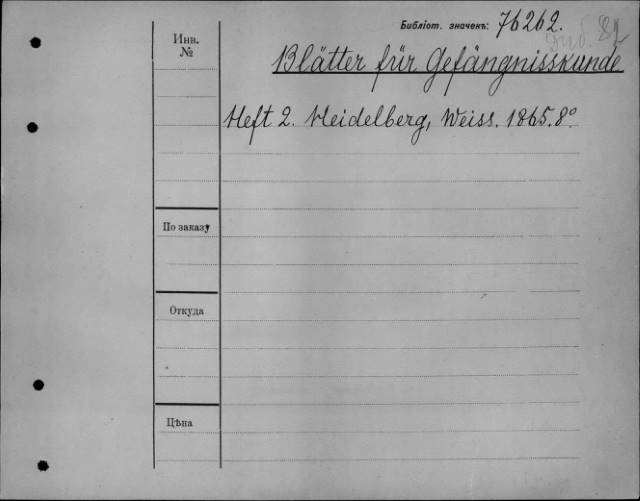 Библіот. значекъ: 76262.
Инв.
№
Blätter für Gefängnisskunde
Heft 2. Heidelberg, Weiss. 1865. 8º
По заказу
Откуда
Цѣна